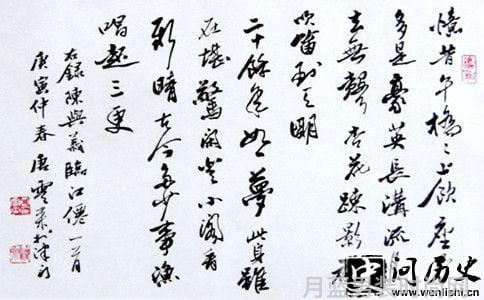 憶昔午橋〻上飲座
多是豪英長溝流
去無聲杏花疎影
吹笛到天明
二十餘年如夢此身雖
在堪驚閒登小閣看
新晴古今多少事漁
唱起三更
右錄陳與義臨江僊一首
庚寅仲春唐雲來於津門
问历史
www.wenlishi.cn